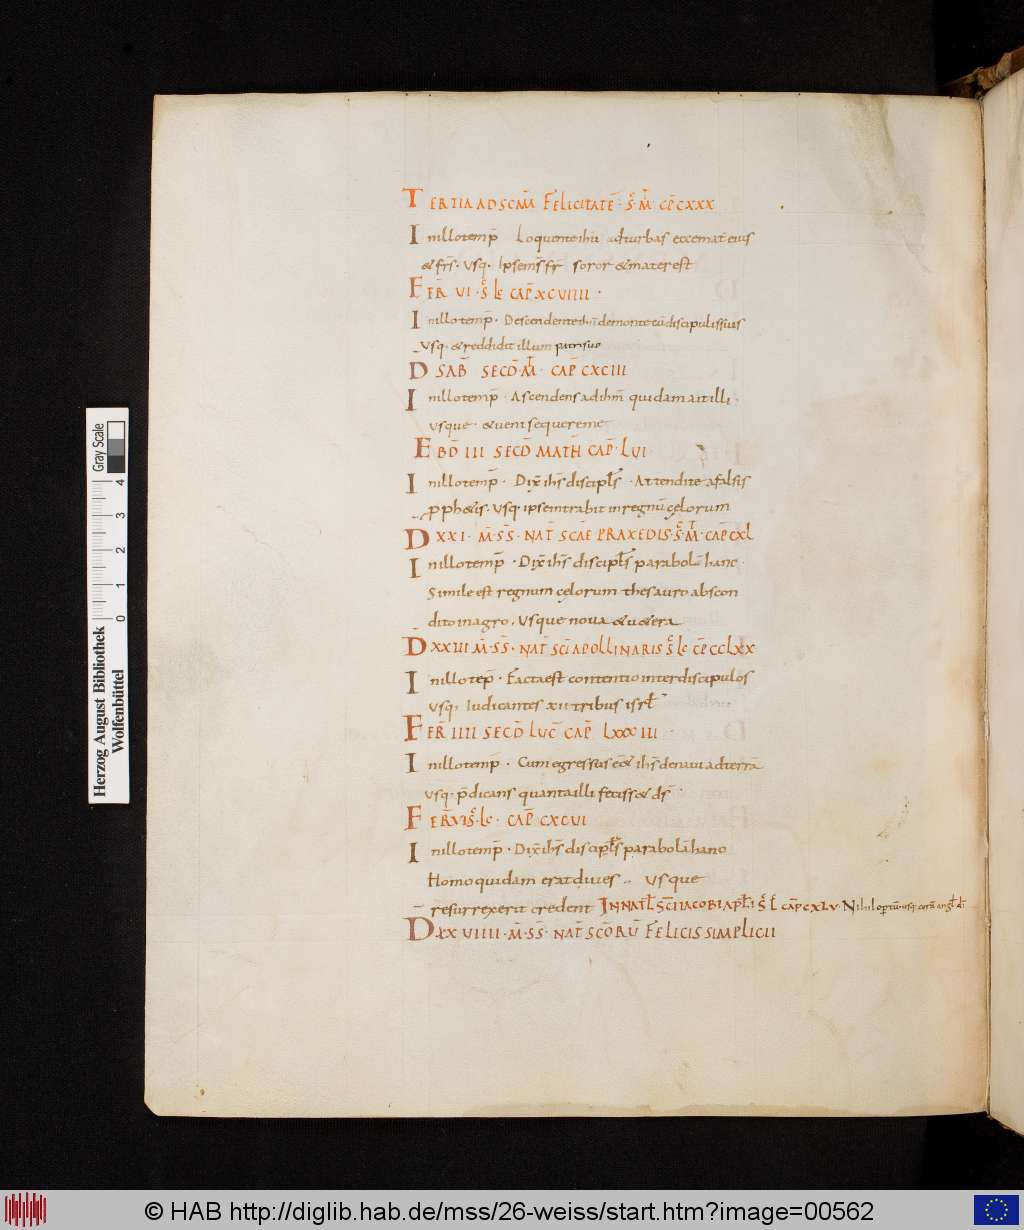 TERTIA AD SCM̄A FELICITATĒ · S̄ · M̄ · CP̄ CXXX
Inillo temp̄ Loquente ihū adturbas ecce mat eius
& frs̄ · Usq · Ipse ms̄ fr̄ soror & mater est
FER̄ VI · S̄ Le CAP̄ XCVIIII ·
Inillo temp̄ · Descendente ihū demonte cū discipulis suis
Usq · & reddidit illum patri suo
D̄ SAB̄ SECD̄ · M̄ · CAP̄ CXCIII
Inillo temp̄ · Ascendens ad ihm̄ quidam ait illi ·
usque · & veni sequere me
EBD̄ III SECD̄ MATH̄ CAP̄ · LVI
Inillo temp̄ · Dix̄ ihs̄ discipl̄s · Attendite afalsis
pph&is · Usq · ipse intrabit in regnū celorum
D̄ XXI · M̄ · S̄S̄ · NAT̄ SCAE PRAXEDIS · S̄ · M̄ · CAP̄ CXL
Inillo temp̄ · Dix̄ ihs̄ discipl̄s parabolā hanc ·
Simile est regnum celorum thesauro abscon
dito inagro · Usque nova & v&era
D̄ XXIII M̄ · S̄S̄ · NAT̄ SCI APOLLINARIS S̄ Le CP̄ CCLXX
Inillo tep̄ · Facta est contentio inter discipulos
Usq · Iudicantes xii tribus isrl̄
FER̄ IIII SECD̄ LUC̄ CAP̄ LXXXIII
Inillo temp̄ · Cum egressus ēē& ihs̄ denavi adterrā
usq · p̄dicans quanta illi feciss& ds̄ ·
FER̄ VI S̄ · Le · CAP̄ CXCVI
Inillo temp̄ · Dix̄ ihs̄ discipl̄s parabolā hanc
Homo quidam erat dives · Usque
resurrexerit credent IN NATL̄ SCI IACOBI APLI S̄ L̄ CAP̄ CXLV Nihil opertū usq corā angl̄ dī
D̄ XXVIIII · M̄ · S̄S̄ · NAT̄ SCŌRŪ FELICIS SIMPLICII
Gray Scale
0 1 2 3 4
Herzog August Bibliothek
Wolfenbüttel
© HAB http://diglib.hab.de/mss/26-weiss/start.htm?image=00562